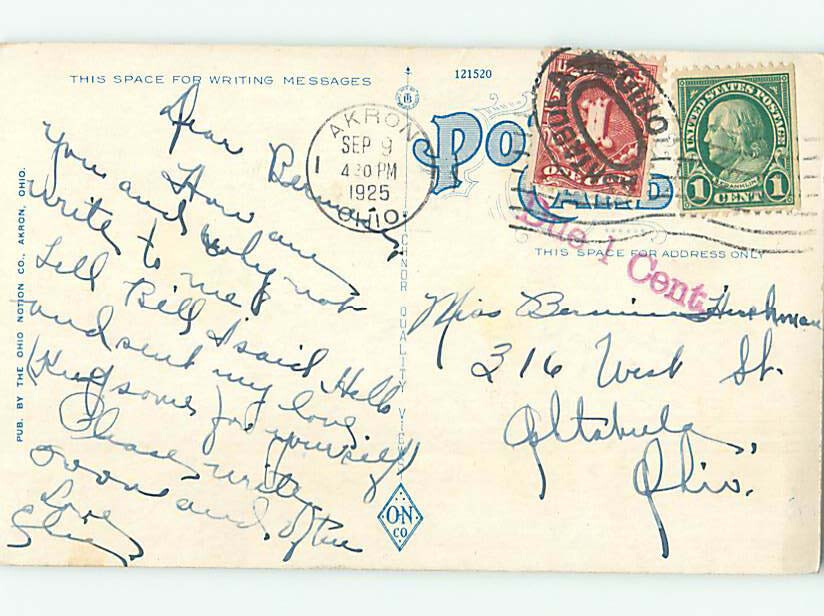 THIS SPACE FOR WRITING MESSAGES
121520
Dear Bernice,
How are
you and why not
write to me?
Tell Bill I said Hello
and sent my love,
(Keep some for yourself)
Please write
soon and often
Love
PUB. BY THE OHIO NOTION CO., AKRON, OHIO.
AKRON
SEP 9
4 30 PM
1925
OHIO
1
ONE CENT
ASHTABULA
OHIO
UNITED STATES POSTAGE
FRANKLIN
1 CENT 1
Due 1 Cent
THIS SPACE FOR ADDRESS ONLY
Miss Bernice Hershman
316 West St.
Ashtabula,
Ohio.
O-N
CO